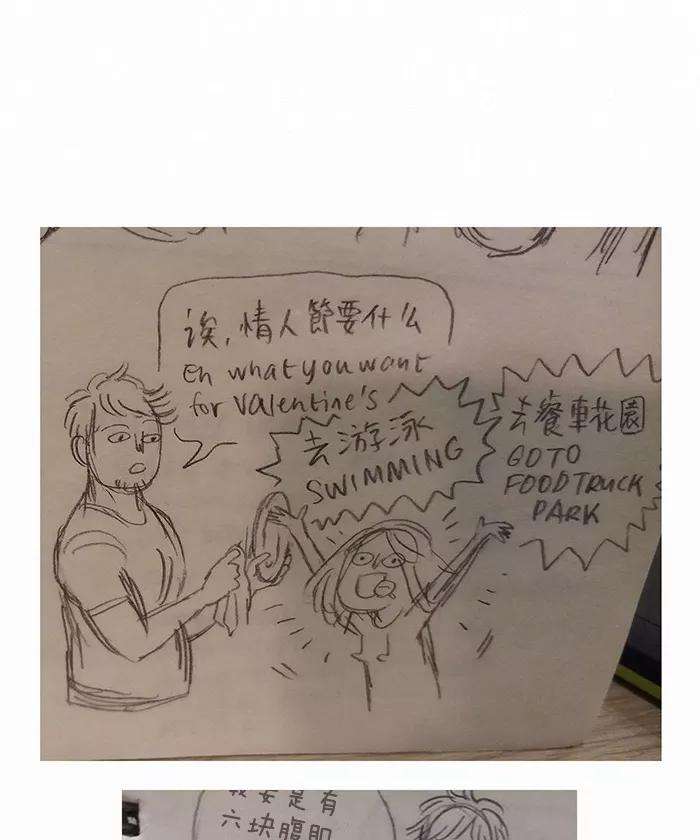 诶,情人節要什么
Eh what you want
for Valentine's
去游泳
SWIMMING
去餐車花園
GO TO
FOOD TRUCK
PARK
是有
六块腹肌